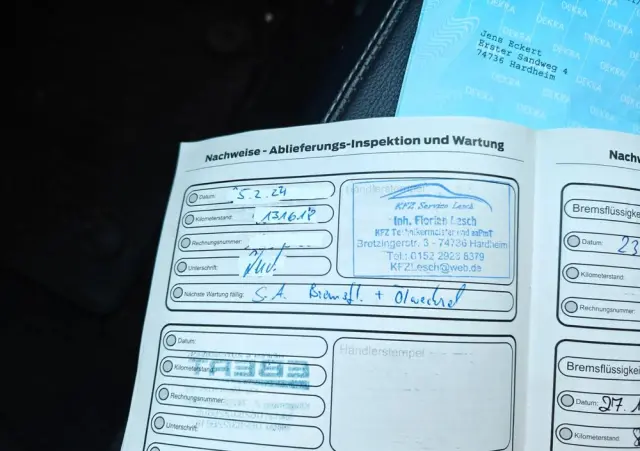 Jens Eckert
Erster Sandweg 4
74736 Hardheim
DEKRA
Nachweise - Ablieferungs-Inspektion und Wartung
Datum: 5.2.24
Kilometerstand: 131617
Rechnungsnummer:
Unterschrift:
Nächste Wartung fällig: S.A. Bremsfl. + Ölwechsel
Händlerstempel
KFZ Service Lesch
Inh. Florian Lesch
KFZ
Bretzingerstr. 3 - 74736 Hardheim
Tel.: 0152 2928 6379
KFZLesch@web.de
Datum:
Kilometerstand:
Rechnungsnummer:
Unterschrift:
Händlerstempel
Nachw
Bremsflüssigkei
Datum: 23
Kilometerstand:
Rechnungsnummer:
Bremsflüssigkei
Datum: 27.1
Kilometerstand: 8